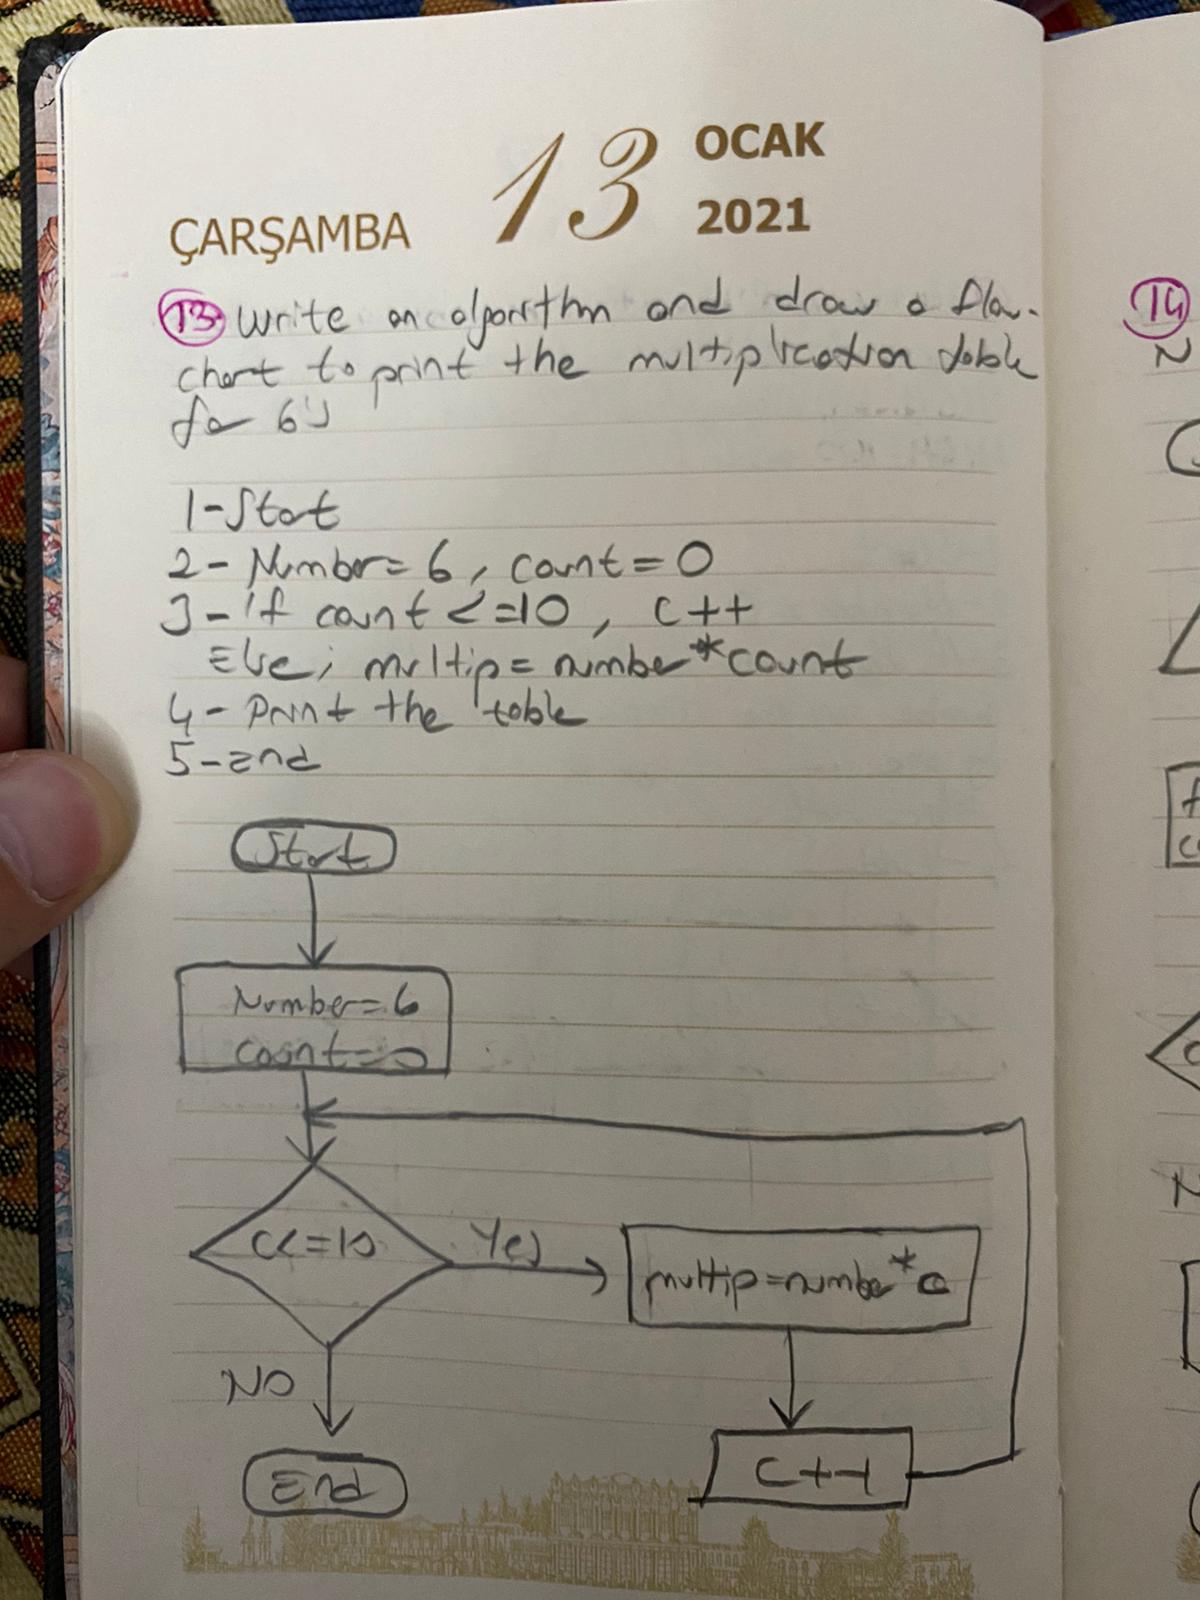 ÇARŞAMBA 13 OCAK
2021
13 Write an algorithm and draw a flow-
chart to print the multiplication table
for 6's
1-Start
2- Number=6, count=0
3-if count <=10, c++
Else; multip=number*count
4- Print the table
5-end
Start
Number=6
count=0
C<=10
Yes
multip=number*c
NO
C++
End
14
N